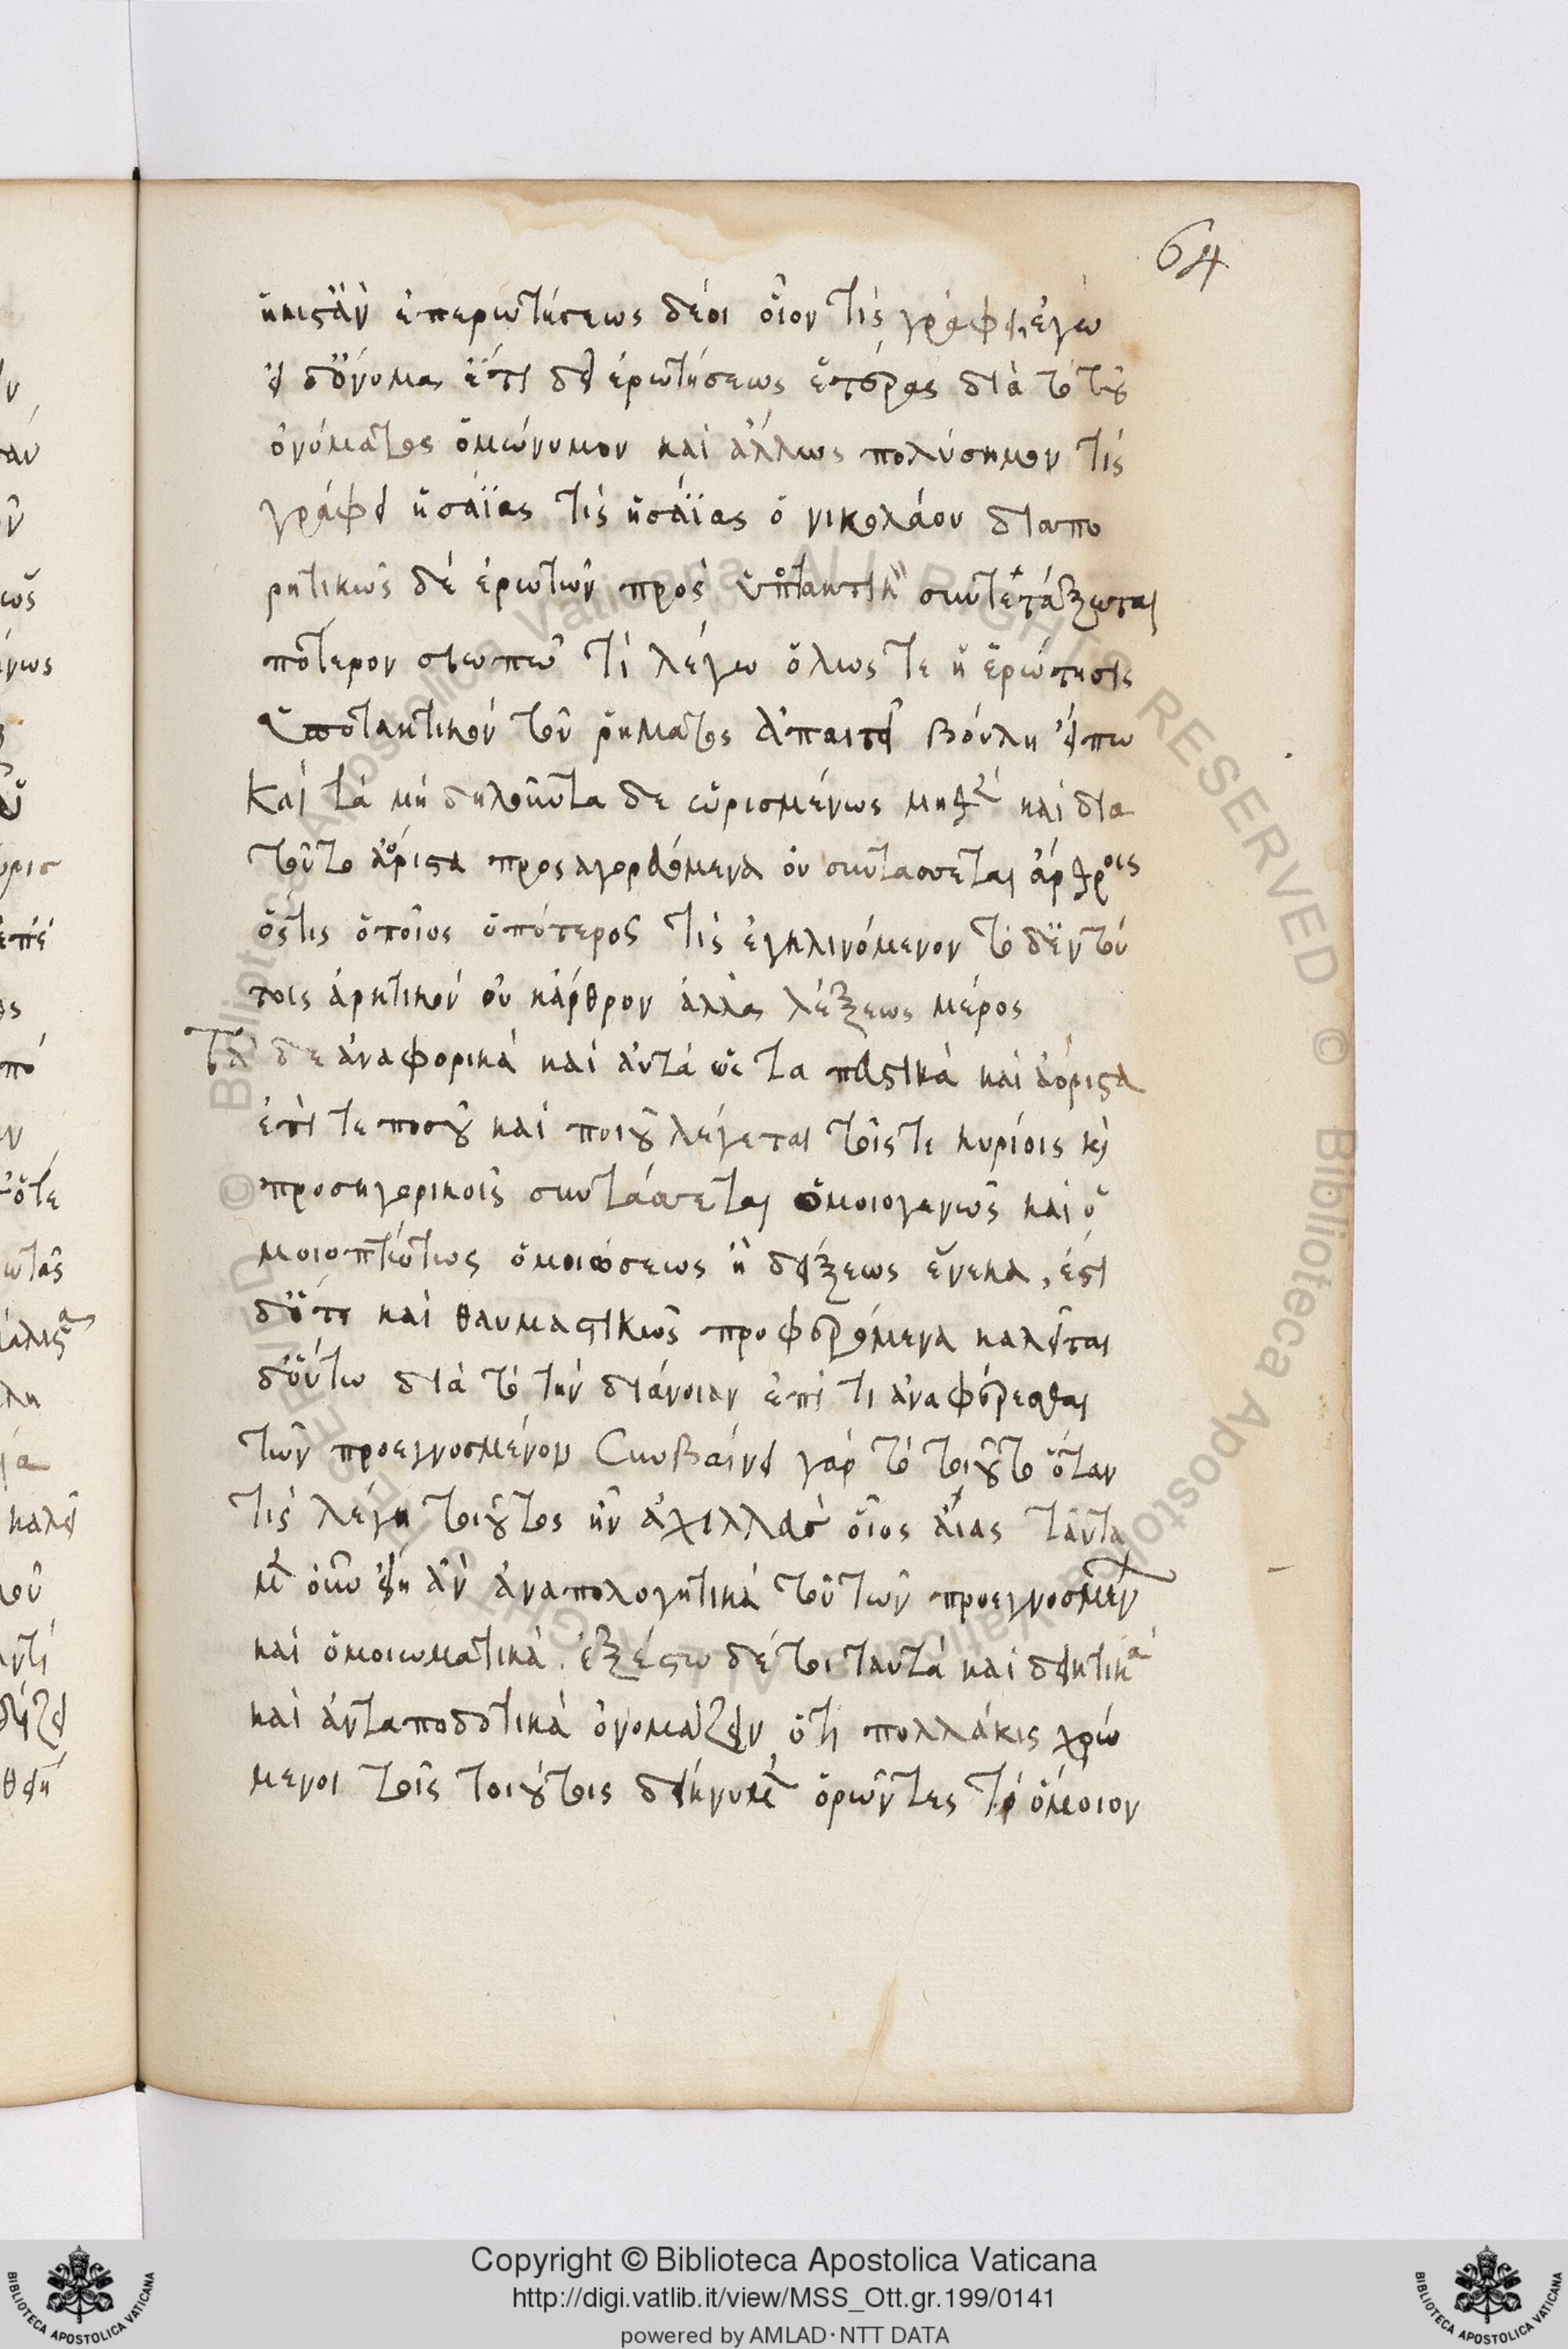 64
ἥκιστ' ἂν ἐπερωτήσεως δέοι οἷον τίς γράφει ἐγώ
εἰ δ' ὄνομα ἔτι δεῖ ἐρωτήσεως ἑτέρας διὰ τὸ τῆς
ὀνόματος ὁμώνυμον καὶ ἄλλως πολύσημον τίς
γράφει ἡσαΐας τίς ἡσαΐας ὁ νικολάου διαπο
ρητικῶς δὲ ἐρωτῶν πρὸς συντετάξωται
πότερον σιωπῶ τί λέγω ὅλως τε ἡ ἐρώτησις
ὑποτακτικὸν τοῦ ῥήματος ἀπαιτεῖ βούλη εἴπω
Καὶ τὰ μὴ δηλοῦντα δε ὡρισμένως μηθὲν καὶ δια
τοῦτο ἀόριστα προσαγορευόμενα οὐ συντάσσεται ἄρθροις
ὅστις ὁποῖος ὁπότερος τὶς ἐγκλινόμενον τὸ δ' ἐν τού
τοις ἀρκτικὸν οὐκ ἄρθρον ἀλλὰ λέξεως μέρος
Τὰ δε ἀναφορικὰ καὶ αὐτὰ ὡς τα πευστικὰ καὶ ἀόριστα
ἐπί τε ποσοῦ καὶ ποιοῦ λέγεται τοῖς τε κυρίοις κὶ
προσηγορικοῖς συντάσσεται ὁμοιογενῶς καὶ ὁ
μοιοπτώτως ὁμοιώσεως ἢ δείξεως ἕνεκα, ἔστι
δ' ὅτε καὶ θαυμαστικῶς προφερόμενα καλεῖται
δ' οὕτω διὰ τὸ τὴν διάνοιαν ἐπί τι ἀναφέρεσθαι
τῶν προεγνοσμένον Συμβαίνει γὰρ τὸ τοιοῦτο ὅταν
τὶς λέγη τοιοῦτος ἦν ἀχιλλεὺς οἷος αἴας ταῦτα
μὲν οὖν εἴη ἂν ἀναπολογητικὰ τοῦ τῶν προεγνοσμέν
καὶ ὁμοιωματικὰ. ἐξέστω δέ τοι ταυτὰ καὶ δεικτικὰ
καὶ ἀνταποδοτικὰ ὀνομάζειν ὅτι πολλάκις χρώ
μενοι τοῖς τοιούτοις δείκνυμεν ὁρῶντες τὸ ὅμοιον
Copyright © Biblioteca Apostolica Vaticana
http://digi.vatlib.it/view/MSS_Ott.gr.199/0141
powered by AMLAD·NTT DATA